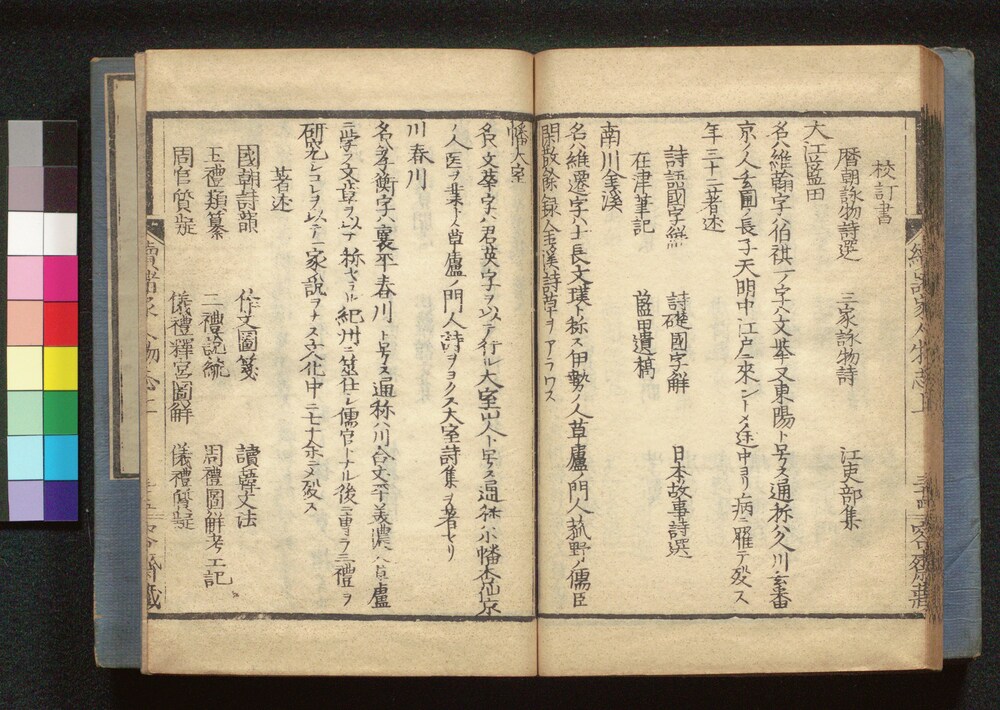 校訂書
暦朝詠物詩選 三家詠物詩 江吏部集
大江藍田
名ハ維翰字ハ伯祺一ノ字ハ文華又東陽ト号ス通称ハ久川玄番
京ノ人玄圃ノ長子天明中江戸ニ來ントメ途中ヨリ病ニ罹テ殁ス
年三十二著述
詩語國字解 詩礎國字解 日本故事詩選
在津筆記 藍田遺稿
南川金溪
名ハ維遷字ハ士長文璞ト称ス伊勢ノ人草廬ノ門人菰野ノ儒臣
閑散餘録金溪詩草ヲアラワス
幡大室
名ハ文華字ハ君英字ヲ以テ行ル大室山人ト号ス通称小幡杏仙京
ノ人医ヲ業トス草廬ノ門人詩ヲヨクス大室詩集ヲ著セリ
川春川
名ハ孝衡字ハ襄平春川ト号ス通称ハ川合丈平美濃ハ草廬
ニ学ヲ文章ヲ以テ称セラル紀州ニ筮仕シ儒官トナル後専ラ三禮ヲ
研究シコレヲ以テ一家説ヲナス文化中ニ七十余ニメ殁ス
著述
國朝詩韻 作文圖箋 讀韓文法
五禮類纂 二禮説統 周禮圖解考工記
周官質疑 儀禮釋宮圖解 儀禮質疑